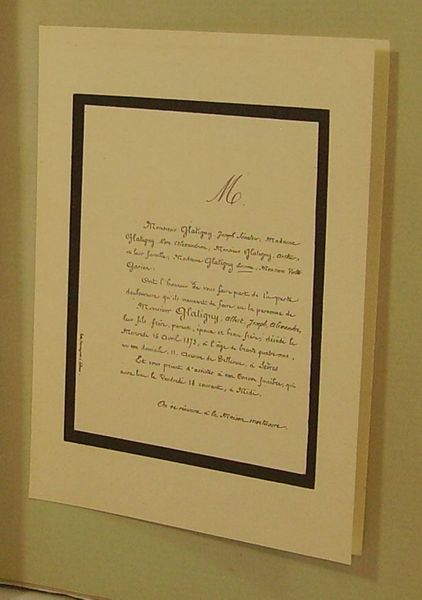 M.
Monsieur Glatigny, Joseph Sénateur, Madame
Glatigny Rose Alexandrine, Monsieur Glatigny,
et leur famille, Madame Glatigny Monsieur
Garcia:
Ont l'honneur de vous faire part de la perte
douloureuse qu'ils viennent de faire en la personne de
Monsieur Glatigny, Albert, Joseph, Alexandre,
leur fils, frère, parent, époux et beau frère, décédé le
Mercredi 16 Avril 1873, à l'âge de trente quatre ans,
en son domicile, 11, Avenue de Bellevue, à Sèvres
Et vous prient d'assister à son Convoi funèbre, qui
aura lieu le Vendredi 18 courant, à Midi.
On se réunira à la Maison mortuaire.